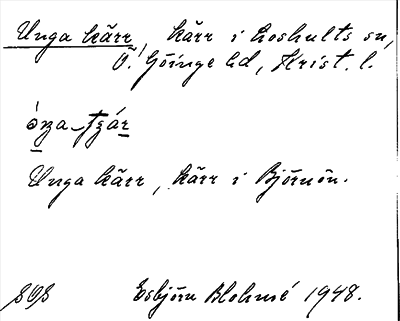 Unga kärr, kärr i Loshults sn,
Ö. Göinge hd, Krist. l.
Unga kärr, kärr i Björnön.
SOS Esbjörn Blohmé 1948.